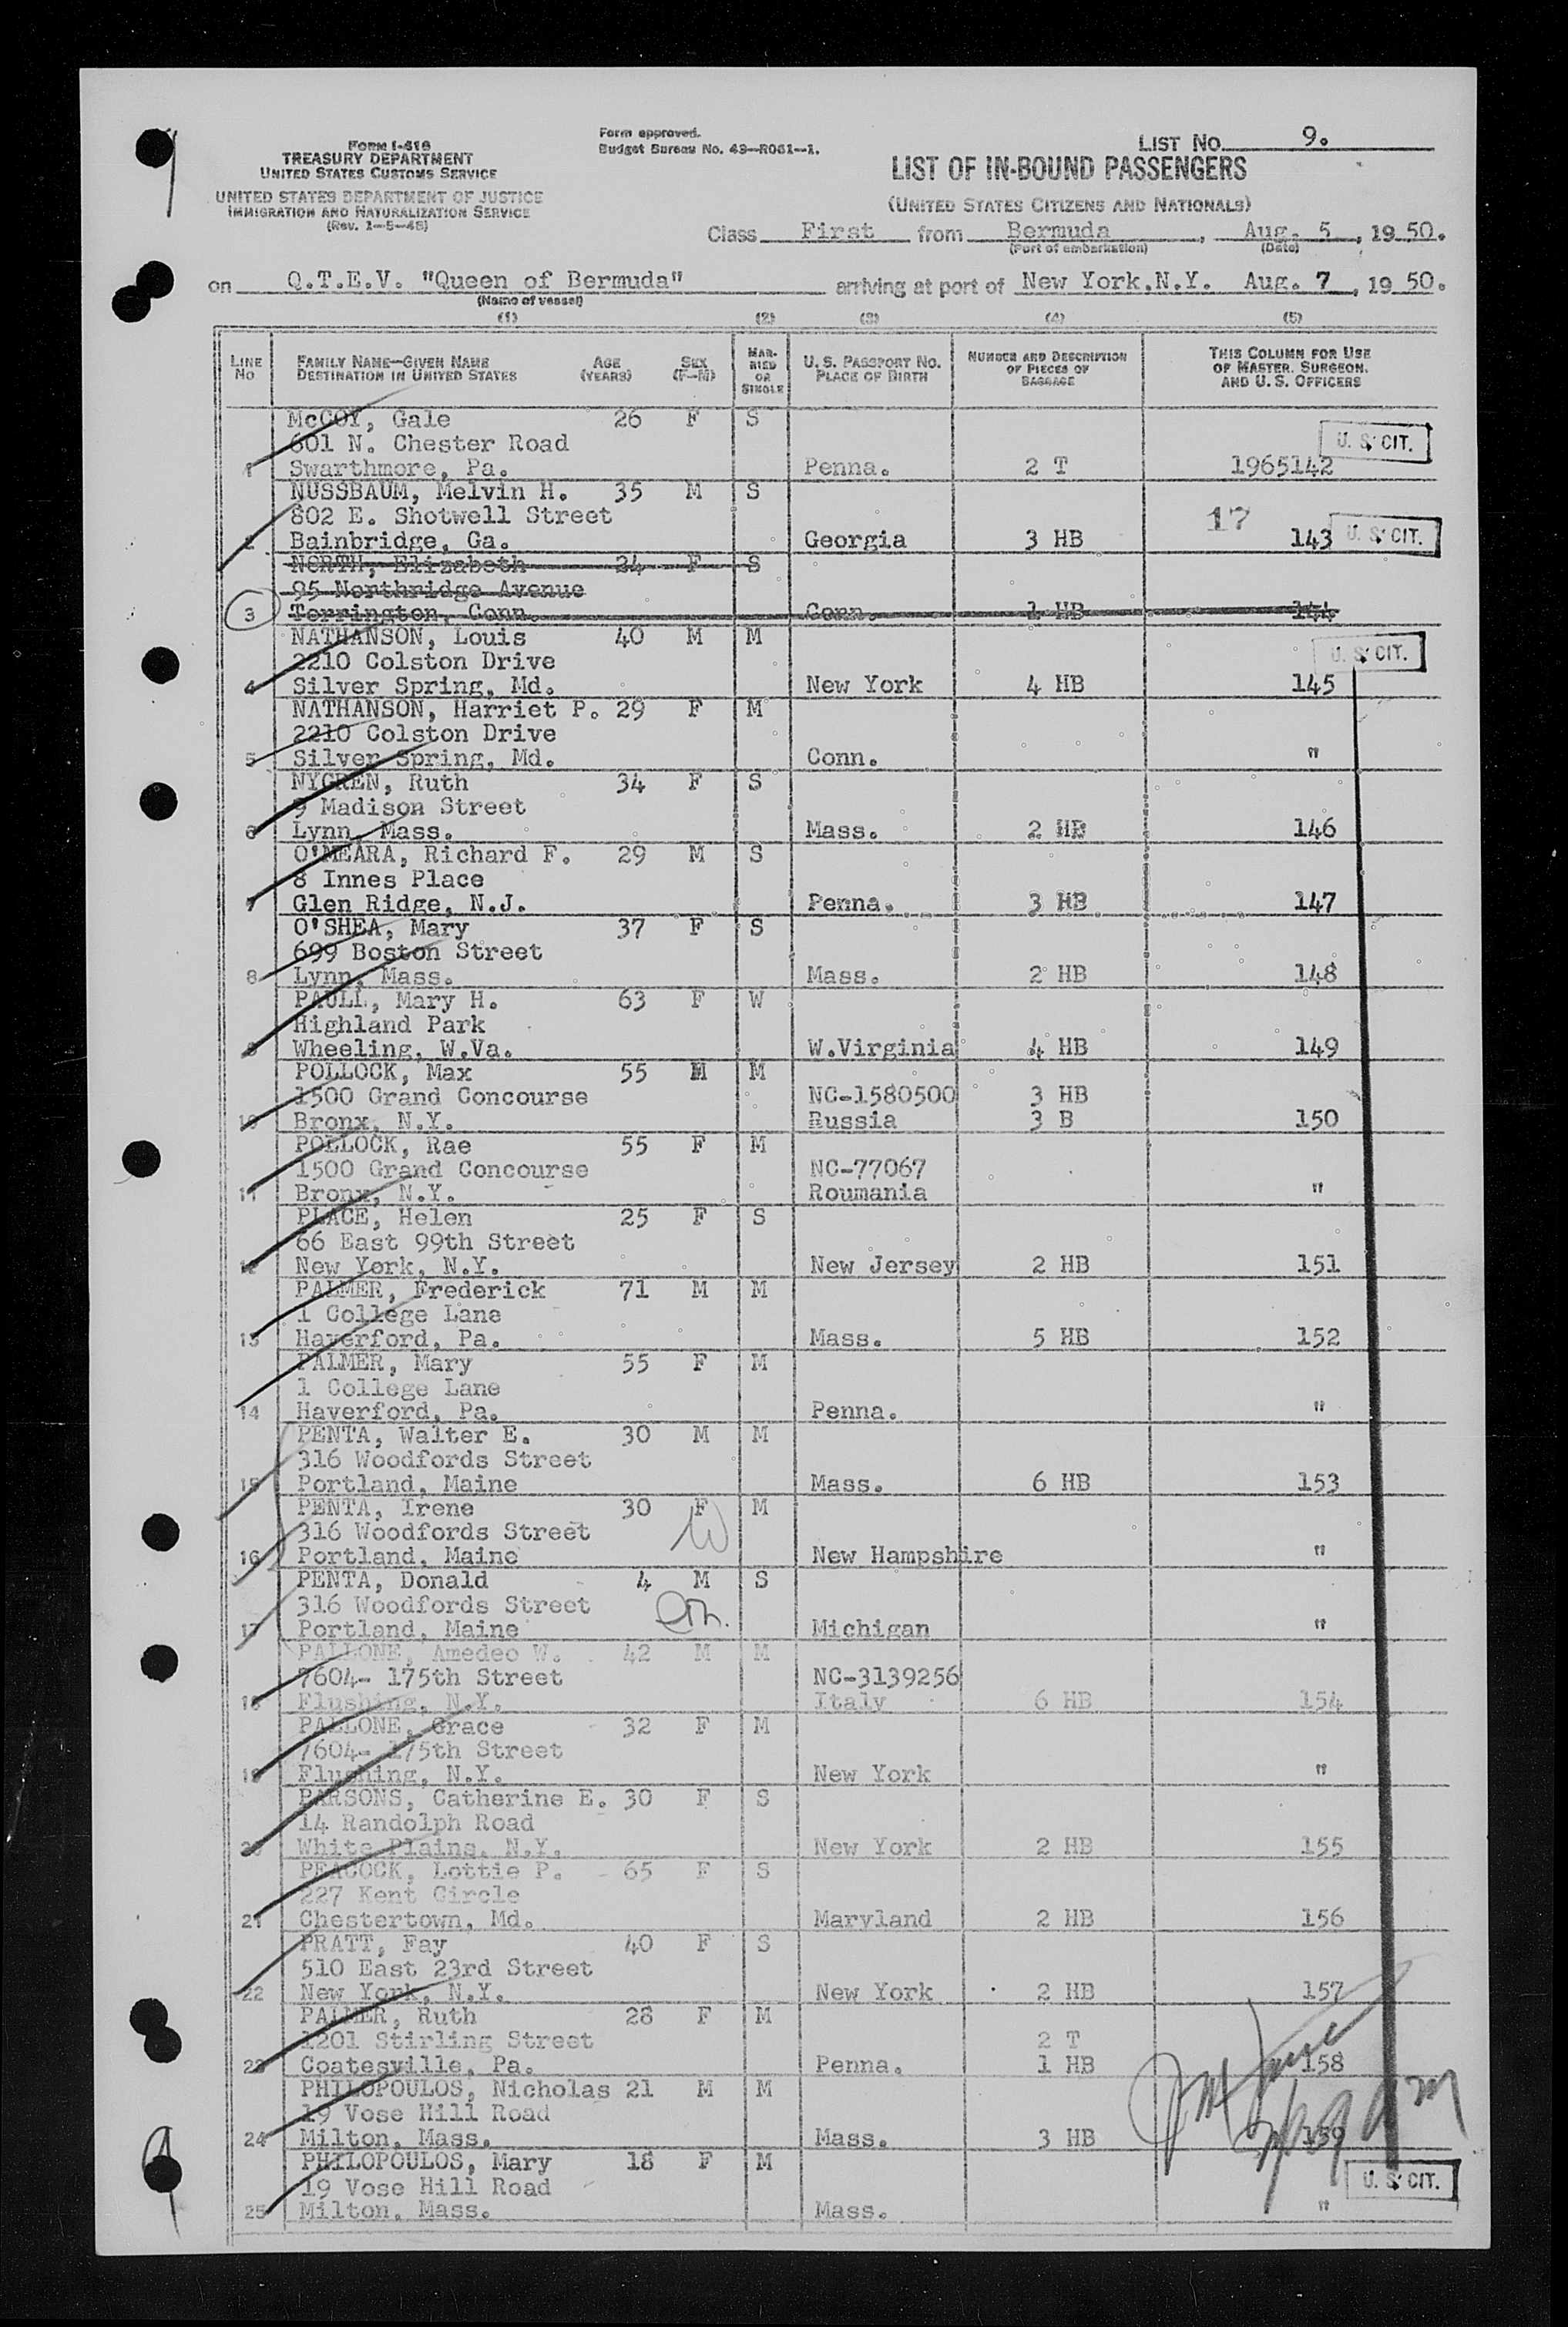 FORM I-618
TREASURY DEPARTMENT
UNITED STATES CUSTOMS SERVICE
UNITED STATES DEPARTMENT OF JUSTICE
IMMIGRATION AND NATURALIZATION SERVICE
(Rev. 1-5-48)
Form approved.
Budget Bureau No. 43-R061-1.
LIST No. 9.
LIST OF IN-BOUND PASSENGERS
(UNITED STATES CITIZENS AND NATIONALS)
Class First from Bermuda, Aug. 5, 1950.
(Port of embarkation) (Date)
on Q.T.E.V. "Queen of Bermuda" arriving at port of New York, N.Y. Aug. 7, 1950.
(Name of vessel)
(1) (2) (3) (4) (5)
LINE No FAMILY NAME—GIVEN NAME DESTINATION IN UNITED STATES AGE (YEARS) SEX (F-M) MARRIED OR SINGLE U. S. PASSPORT No. PLACE OF BIRTH NUMBER AND DESCRIPTION OF PIECES OF BAGGAGE THIS COLUMN FOR USE OF MASTER. SURGEON. AND U. S. OFFICERS
McCOY, Gale 26 F S
601 N. Chester Road U. S. CIT.
1 Swarthmore, Pa. Penna. 2 T 1965142
NUSSBAUM, Melvin H. 35 M S
802 E. Shotwell Street 17
2 Bainbridge, Ga. Georgia 3 HB 143 U. S. CIT.
NORTH, Elizabeth 24 F S
95 Northridge Avenue
3 Torrington, Conn. Conn. 1 HB 144
NATHANSON, Louis 40 M M
2210 Colston Drive U. S. CIT.
4 Silver Spring, Md. New York 4 HB 145
NATHANSON, Harriet P. 29 F M
2210 Colston Drive
5 Silver Spring, Md. Conn. "
NYGREN, Ruth 34 F S
9 Madison Street
6 Lynn, Mass. Mass. 2 HB 146
O'MEARA, Richard F. 29 M S
8 Innes Place
7 Glen Ridge, N.J. Penna. 3 HB 147
O'SHEA, Mary 37 F S
699 Boston Street
8 Lynn, Mass. Mass. 2 HB 148
PAULL, Mary H. 63 F W
Highland Park
9 Wheeling, W.Va. W.Virginia 4 HB 149
POLLOCK, Max 55 M M
1500 Grand Concourse NC-1580500 3 HB
10 Bronx, N.Y. Russia 3 B 150
POLLOCK, Rae 55 F M
1500 Grand Concourse NC-77067
11 Bronx, N.Y. Roumania "
PLACE, Helen 25 F S
66 East 99th Street
12 New York, N.Y. New Jersey 2 HB 151
PALMER, Frederick 71 M M
1 College Lane
13 Haverford, Pa. Mass. 5 HB 152
PALMER, Mary 55 F M
1 College Lane
14 Haverford, Pa. Penna. "
PENTA, Walter E. 30 M M
316 Woodfords Street
15 Portland, Maine Mass. 6 HB 153
PENTA, Irene 30 F M
316 Woodfords Street W
16 Portland, Maine New Hampshire "
PENTA, Donald 4 M S
316 Woodfords Street
17 Portland, Maine Michigan "
PALLONE, Amedeo W. 42 M M
7604- 175th Street NC-3139256
18 Flushing, N.Y. Italy 6 HB 154
PALLONE, Grace 32 F M
7604- 175th Street
19 Flushing, N.Y. New York "
PARSONS, Catherine E. 30 F S
14 Randolph Road
20 White Plains, N.Y. New York 2 HB 155
PEACOCK, Lottie P. 65 F S
227 Kent Circle
21 Chestertown, Md. Maryland 2 HB 156
PRATT, Fay 40 F S
510 East 23rd Street
22 New York, N.Y. New York 2 HB 157
PALMER, Ruth 28 F M
1201 Stirling Street 2 T
23 Coatesville, Pa. Penna. 1 HB 158
PHILOPOULOS, Nicholas 21 M M
19 Vose Hill Road
24 Milton, Mass. Mass. 3 HB 159
PHILOPOULOS, Mary 18 F M
19 Vose Hill Road U. S. CIT.
25 Milton, Mass. Mass. "